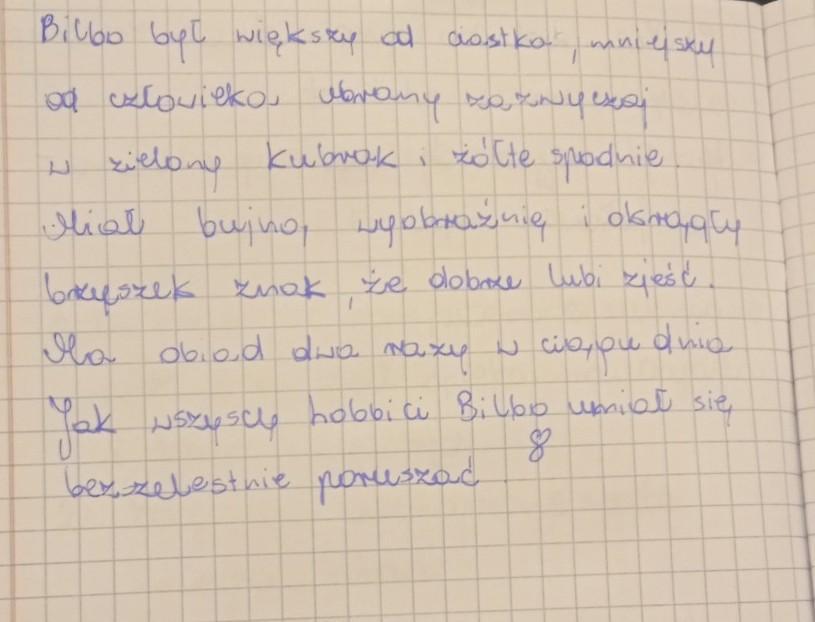 Bilbo był większy od ciastka, mniejszy
od człowieka, ubrany zazwyczaj
w zielony kubrak i żółte spodnie.
Miał bujną wyobraźnię i okrągły
brzyszek znak, że dobrze lubi zjeść.
Ma obiad dwa razy w ciąpu dnia
Jak wszyscy hobbici Bilbo umiał się
bezszelestnie poruszać
8